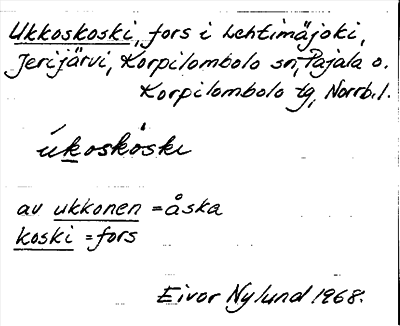 Ukkoskoski, fors i Lehtimäjoki,
Jerijärvi, Korpilombolo sn, Pajala o.
Korpilombolo tg, Norrb.l.
úkoskòski
av ukkonen = åska
koski = fors
Eivor Nylund 1968.